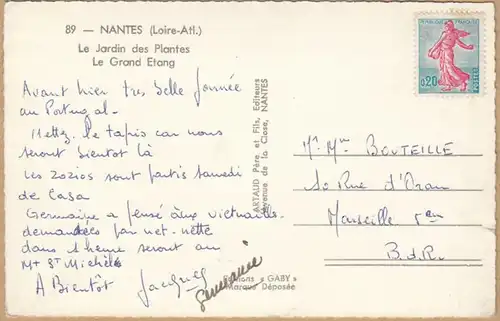 89 — NANTES (Loire-Atl.)
Le Jardin des Plantes
Le Grand Etang
Avant hier très belle journée
au Portugal-
Mettez le tapis car nous
seront bientot là
Les zozios sont partis samedi
de Casa
Germaine a pensé aux victuailles
demandées par net-nette
dans 1 heure seront au
Mt St Michel
A Bientôt Jacques
Germaine
ARTAUD Père et Fils, Editeurs
Avenue de la Close, NANTES
Editions « GABY »
Marque Déposée
REPUBLIQUE FRANÇAISE
0,20
POSTES
Mr Mme BOUTEILLE
10 Rue d'Oran
Marseille 5em
B.d.R.